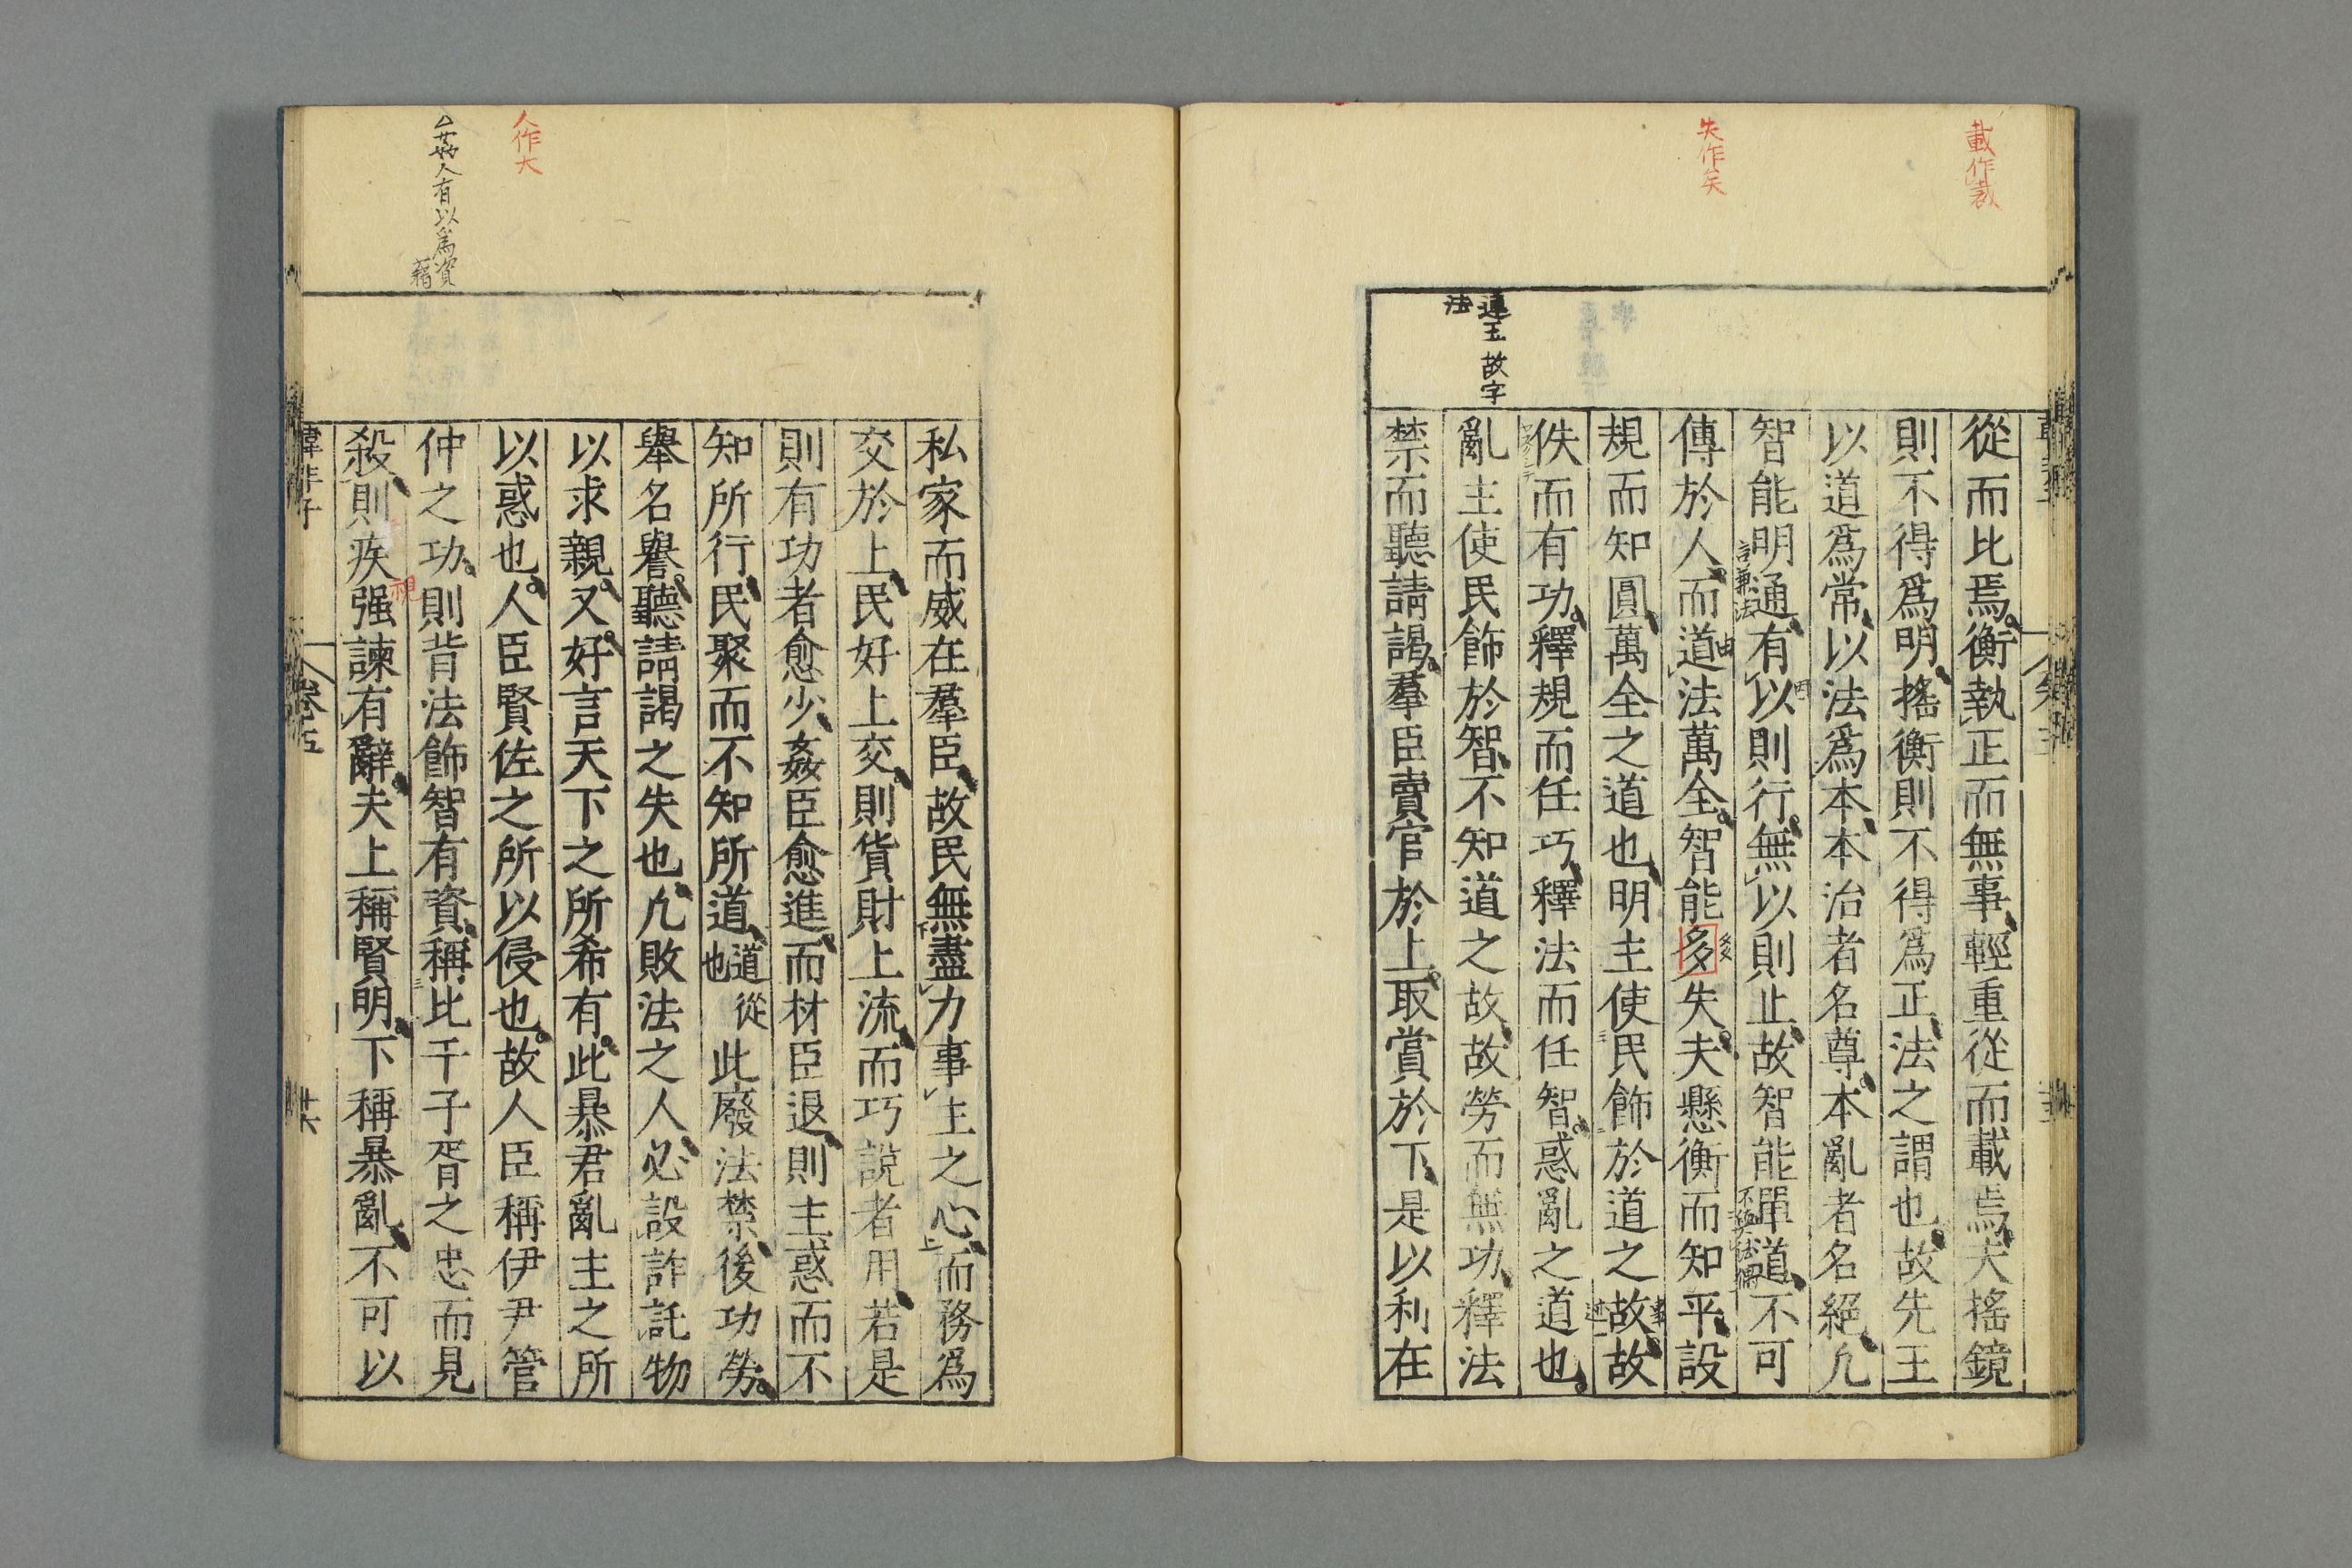 載作裁
失作矣
連王故字
法
從而比焉衡執正而無事輕重從而載焉夫搖鏡
則不得爲明搖衡則不得爲正法之謂也故先王
以道爲常以法爲本本治者名尊本亂者名絕凢
智能明通有以則行無以則止故智能單道不可
言兼法
傳於人而道法萬全智能多失夫懸衡而知平設
由
規而知圓萬全之道也明主使民飾於道之故故
佚而有功釋規而任巧釋法而任智惑亂之道也
亂主使民飾於智不知道之故故勞而無功釋法
禁而聽請謁羣臣賣官於上取賞於下是以利在
人作大
△姦人有以爲資
藉
私家而威在羣臣故民無盡力事主之心而務爲
交於上民好上交則貨財上流而巧說者用若是
則有功者愈少姦臣愈進而材臣退則主惑而不
知所行民聚而不知所道道從也此廢法禁後功勞
舉名譽聽請謁之失也凢敗法之人必設詐託物
以求親又好言天下之所希有此暴君亂主之所
以惑也人臣賢佐之所以侵也故人臣稱伊尹管
仲之功則背法飾智有資稱比干子胥之忠而見
視
殺則疾强諫有辭夫上稱賢明下稱暴亂不可以
韓非子
卷五
廿六